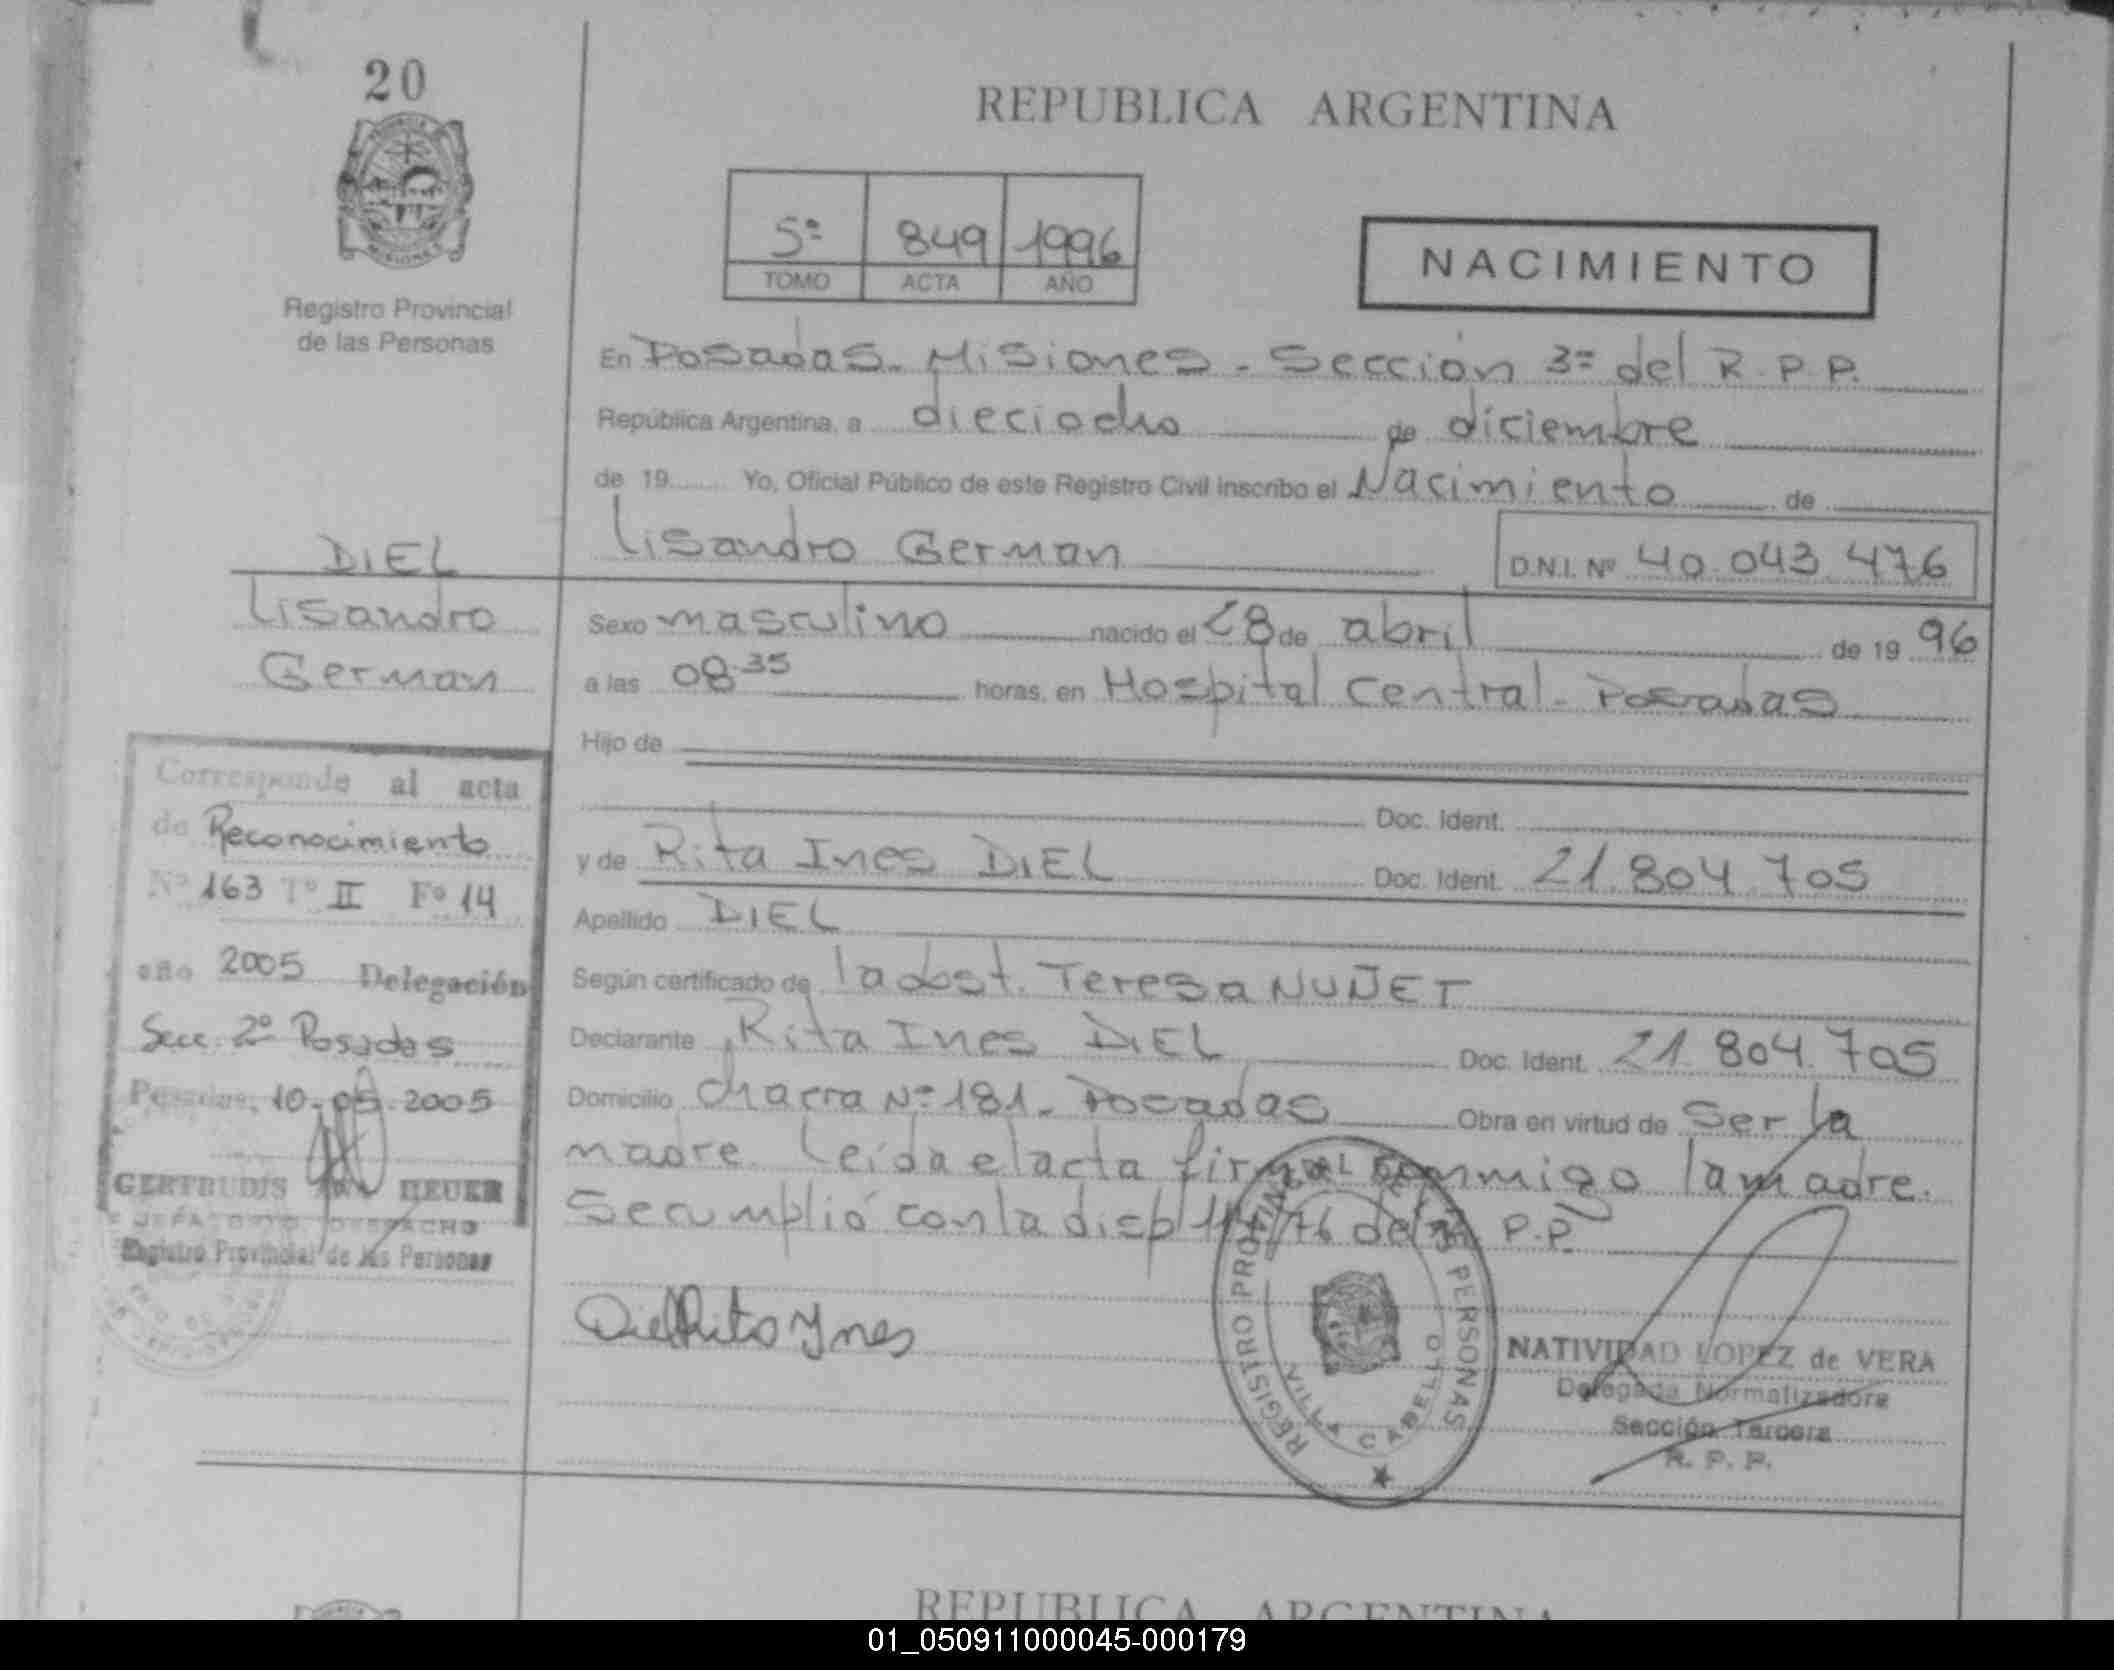 20
REPUBLICA ARGENTINA
5º 849 1996
TOMO ACTA AÑO
NACIMIENTO
Registro Provincial
de las Personas
En Posadas. Misiones - Sección 3ª del R.P.P.
República Argentina, a dieciocho de diciembre
de 19 Yo, Oficial Público de este Registro Civil inscribo el Nacimiento de
Lisandro German D.N.I. Nº 40.043.476
DIEL
Lisandro
German
Sexo masculino nacido el 28 de abril de 19 96
a las 08.35 horas, en Hospital Central - Posadas
Hijo de
Doc. Ident.
y de Rita Ines DIEL Doc. Ident. 21.804.705
Apellido DIEL
Según certificado de la obst. Teresa
Declarante Rita Ines DIEL Doc. Ident. 21.804.705
Domicilio Chacra Nº 181 - Posadas Obra en virtud de Ser la
madre. Leída el acta firma conmigo la madre.
Se cumplió con la disp P.P.
Diel Rita Ynes
Corresponde al acta
de Reconocimiento
Nº 163 Tº II Fº 14
año 2005 Delegación
Secc. 2º Posadas
Posadas, 10.05.2005
GERTRUDIS HEUER
DESPACHO
Registro Provincial de las Personas
REGISTRO PROVINCIAL DE LAS PERSONAS
VILLA CABELLO
NATIVIDAD LOPEZ de VERA
Delegada Normalizadora
Sección Tercera
R. P. P.
REPUBLICA ARGENTINA
01_050911000045-000179